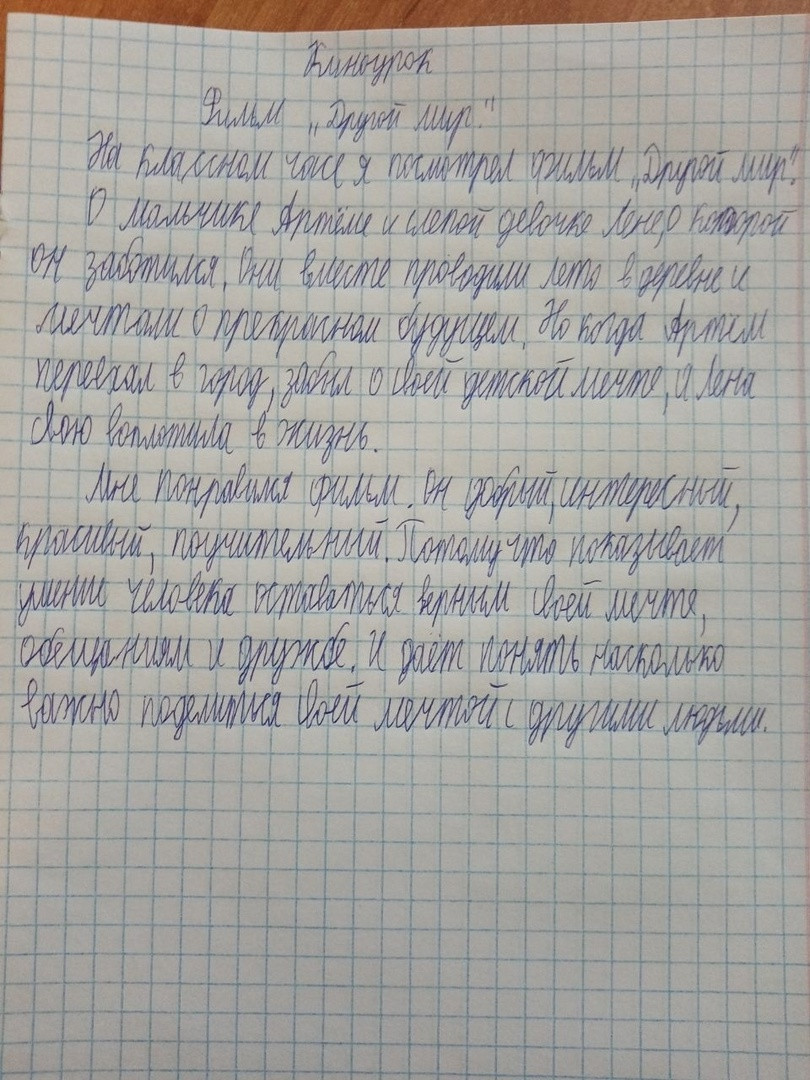 Киноурок
Фильм „Другой мир."
На классном часе я посмотрел фильм „Другой мир".
О мальчике Артёме и слепой девочке Лене, о которой
он заботился. Они вместе проводили лето в деревне и
мечтали о прекрасном будущем. Но когда Артём
переехал в город, забыл о своей детской мечте, а Лена
свою воплотила в жизнь.
Мне понравился фильм. Он добрый, интересный,
красивый, поучительный. Потому что показывает
умение человека оставаться верным своей мечте,
обещаниям и дружбе. И даёт понять насколько
важно поделиться своей мечтой с другими людьми.